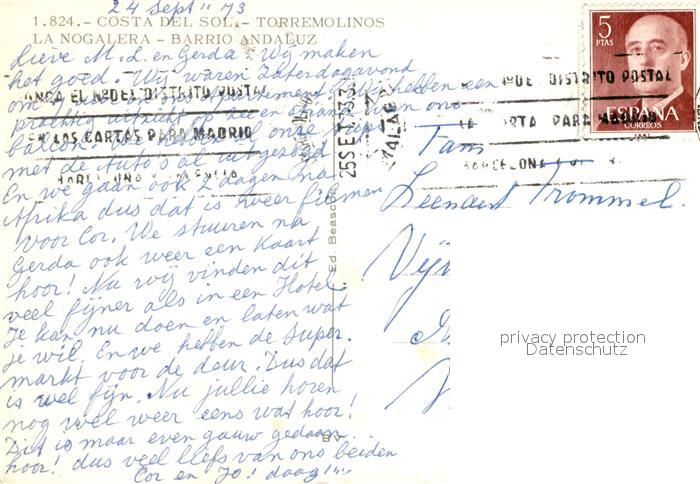 24 Sept '' 73
1.824.- COSTA DEL SOL.- TORREMOLINOS
LA NOGALERA - BARRIO ANDALUZ
Lieve M. L. en Gerda. Wij maken
het goed. Wij waren Zaterdagavond
om hebben een
prachtig uitzicht op zee en strand van ons
balcon. We hebben al onze
met de Auto's al uitgezocht
En we gaan ook 2 dagen na
Afrika dus dat is weer filmen
voor Cor. We stuuren na
Gerda ook weer een kaart
hoor! Nu wij vinden dit
veel fijner als in een Hotel.
Je kan nu doen en laten wat
je wil. En we hebben de Super-
markt voor de deur. Dus dat
is wel fijn. Nu jullie horen
nog wel weer eens wat hoor!
Dit is maar even gauw gedaan.
hoor! dus veel liefs van ons beiden
Cor en Jo! daag!
Ed. Beascoa
BV
PONGA EL Nº DEL DISTRITO POSTAL
EN LAS CARTAS PARA MADRID
BARCELONA
25 SET. 73
MALAGA
Nº DEL DISTRITO POSTAL
PARA MADRID
BARCELONA
5
PTAS
ESPAÑA
CORREOS
Fam
Leendert Trommel.
privacy protection
Datenschutz